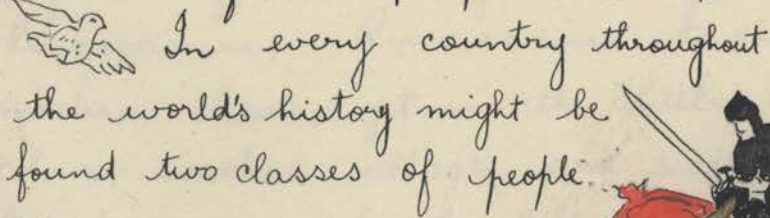 In every country throughout
the world's history might be
found two classes of people